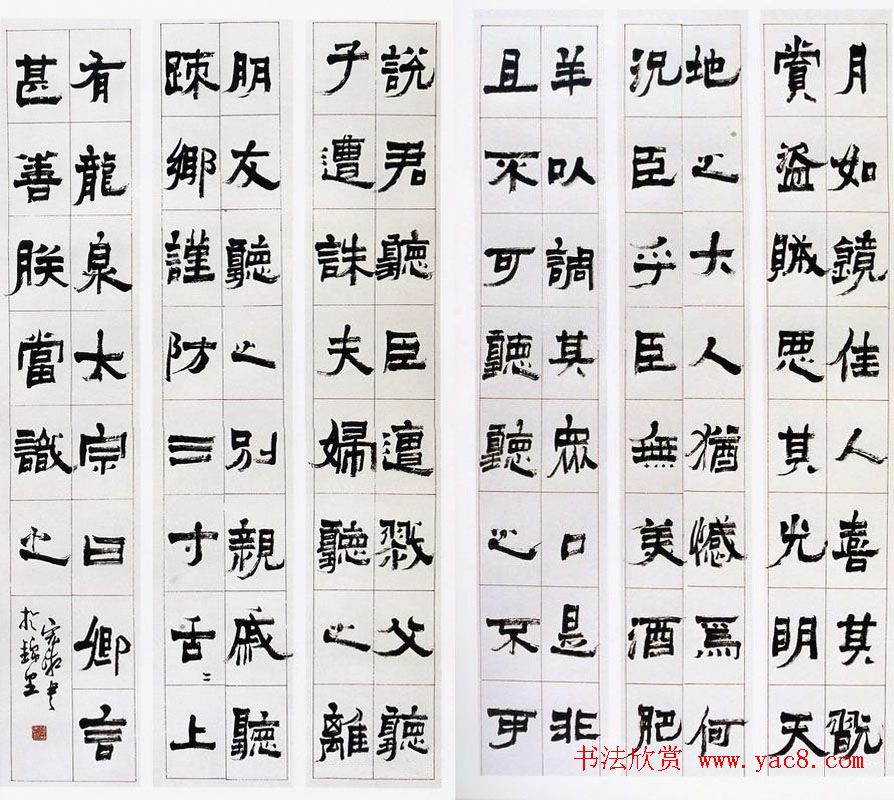 月如鏡佳人喜其翫
賞盜賊惡其光明天
地之大人猶憾爲何
況臣乎臣無美酒肥
羊以調其眾口是非
且不可聽聽之不可
說君聽臣遭戮父聽
子遭誅夫婦聽之離
朋友聽之別親戚聽
踈鄉謹防三寸舌〻上
有龍泉太宗曰卿言
甚善朕當識之
書於錦里
书法欣赏 www.yac8.com